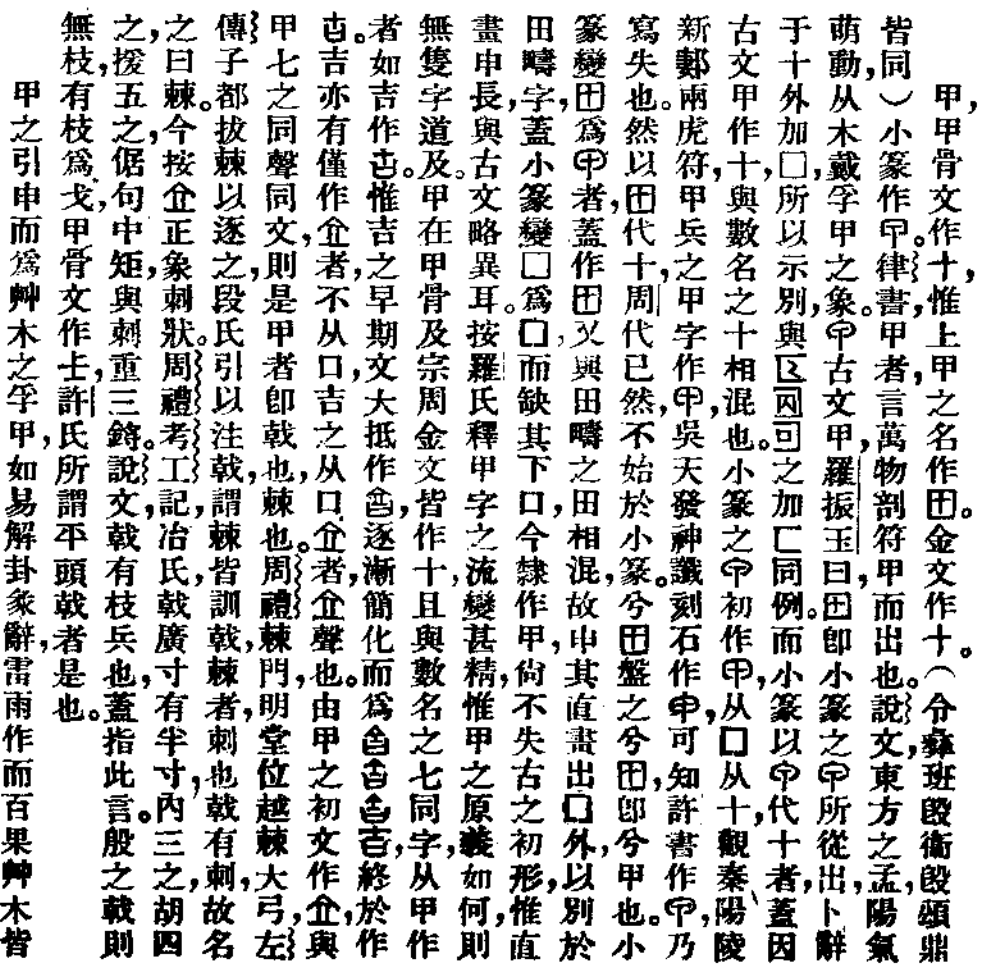 甲,甲骨文作十,惟上甲之名作田。金文作十。(令彝班𣪘衞𣪘頌鼎
皆同)小篆作。律書,甲者,言萬物剖符甲而出也。說文,東方之孟,陽氣
萌動,从木戴孚甲之象。古文甲,羅振玉曰,田卽小篆之所從出,卜辭
于十外加囗,所以示別,與之加匚同例。而小篆以代十者,蓋因
古文甲作十,與數名之十相混也。小篆之初作甲,从囗从十,觀秦陽陵
新郪兩虎符,甲兵之甲字作甲,吳天發神讖刻石作,可知許書作,乃
寫失也。然以田代十,周代已然,不始於小篆。兮田盤之兮田,卽兮甲也。小
篆變田爲者,蓋作田又與田疇之田相混,故申其直畫出囗外,以別於
田疇字,蓋小篆變囗爲,而缺其下口,今隸作甲,尙不失古之初形,惟直
畫申長,與古文略異耳。按羅氏釋甲字之流變甚精,惟甲之原義如何,則
無隻字道及。甲在甲骨及宗周金文皆作十,且與數名之七同字,从甲作
者如吉作。惟吉之早期文大抵作,逐漸簡化而爲,終於作
。吉亦有僅作者,不从口,吉之从口者,聲也。由甲之初文作,與
甲七之同聲同文,則是甲者卽戟也,棘也。周禮棘門,明堂位越棘大弓,左
傳子都拔棘以逐之,段氏引以注戟,謂棘皆訓戟,棘者,刺也戟有刺,故名
之曰棘。今按正象刺狀。周禮考工記,冶氏,戟廣寸有半寸,內三之,胡四
之,援五之,倨句中矩,與刺重三鋝。說文,戟有枝兵也,蓋指此言。般之戟則
無枝,有枝爲戈,甲骨文作,許氏所謂平頭戟者是也。
甲之引申而爲艸木之孚甲,如易解卦彖辭,雷雨作而百果艸木皆